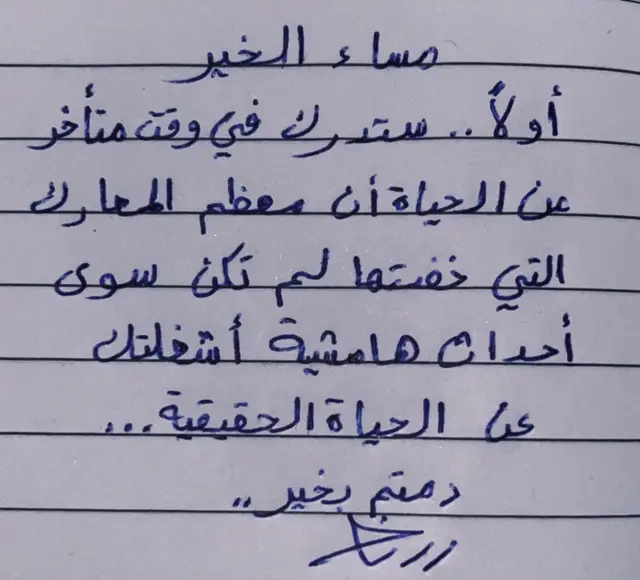 مساء الخير
أولاً.. ستدرك في وقت متأخر
عن الحياة أن معظم المعارك
التي خضتها لم تكن سوى
أحداث هامشية أشغلتك
عن الحياة الحقيقية...
دمتم بخير..